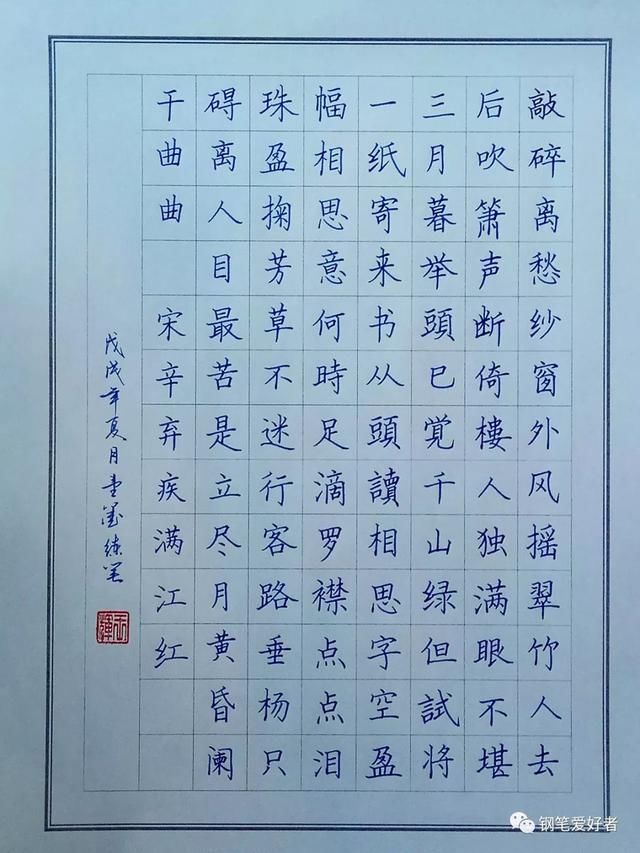 敲碎离愁纱窗外风摇翠竹人去
后吹箫声断倚楼人独满眼不堪
三月暮举頭已覚千山绿但試将
一纸寄来书从頭讀相思字空盈
幅相思意何時足滴罗襟点点泪
珠盈掬芳草不迷行客路垂杨只
碍离人目最苦是立尽月黄昏阑
干曲曲 宋辛弃疾满江红
戊戌年夏月墨练笔
钢笔爱好者